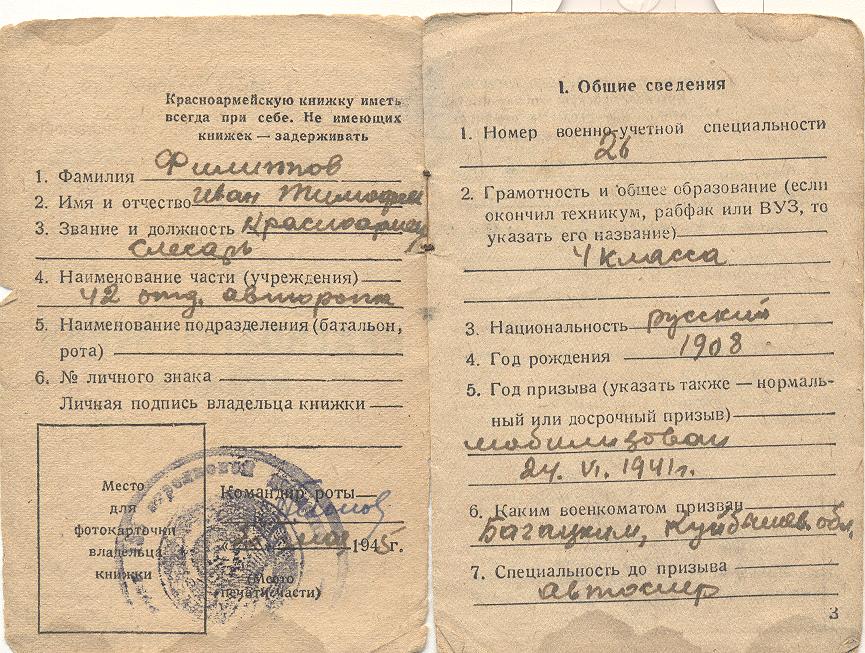 Красноармейскую книжку иметь
всегда при себе. Не имеющих
книжек — задерживать
1. Фамилия Филиппов
2. Имя и отчество Иван Тимофеев
3. Звание и должность Красноармеец
слесарь
4. Наименование части (учреждения)
42 отд. авторота
5. Наименование подразделения (батальон,
рота)
6. № личного знака
Личная подпись владельца книжки
Место
для
фотокарточки
владельца
книжки
Командир роты
1945 г.
(Место
печати части)
I. Общие сведения
1. Номер военно-учетной специальности
26
2. Грамотность и общее образование (если
окончил техникум, рабфак или ВУЗ, то
указать его название)
4 класса
3. Национальность русский
4. Год рождения 1908
5. Год призыва (указать также — нормаль-
ный или досрочный призыв)
мобилизован
24. VI. 1941 г.
6. Каким военкоматом призван
Куйбышев. обл.
7. Специальность до призыва
3